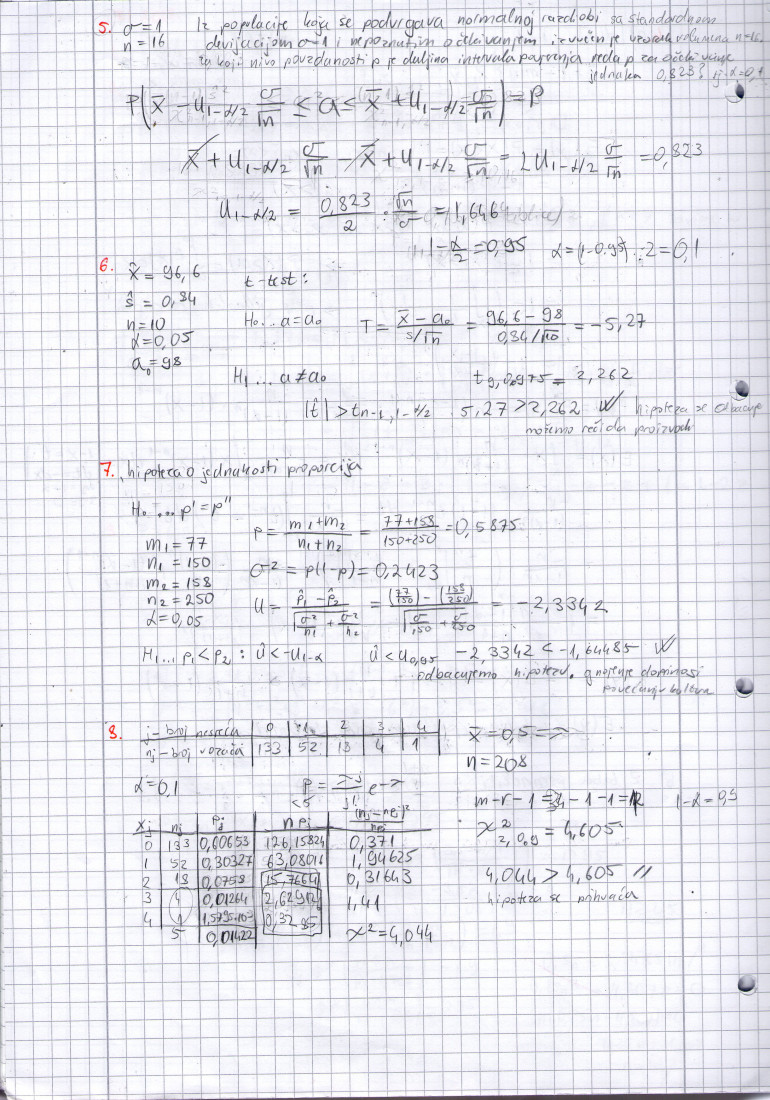 5. σ=1 Iz populacije koja se podvrgava normalnoj razdiobi sa standardnom
n=16 devijacijom σ=1 i nepoznatim očekivanjem izvučen je uzorak volumena n=16.
za koji nivo pouzdanosti p je duljina intervala povjerenja reda p za očekivanje
jednaka 0,823?
P(x̄ - u1-α/2 σ/√n ≤ a ≤ x̄ + u1-α/2 σ/√n) = p
x̄ + u1-α/2 σ/√n - x̄ + u1-α/2 σ/√n = 2u1-α/2 σ/√n = 0,823
u1-α/2 = 0,823/2 · √n/σ = 1,646
1-α/2 = 0,95 α=(1-0.95)·2=0,1
6. x̂ = 96,6 t-test:
ŝ = 0,84
n=10 H0... a=a0 T = x̄-a0 / s/√n = 96,6-98 / 0,84/√10 = -5,27
α=0,05
a0=98
H1... a≠a0 t9,0.975 = 2,262
|t̂| > tn-1,1-α/2 5,27 > 2,262 hipoteza se odbacuje
možemo reći da
7. hipoteza o jednakosti proporcija
H0 ... p'=p''
p = m1+m2 / n1+n2 = 77+158 / 150+250 = 0,5875
m1=77
n1=150
m2=158
n2=250
α=0,05
σ² = p(1-p) = 0,2423
u = p̂1-p̂2 / √(σ²/n1 + σ²/n2) = (77/150)-(158/250) / √(σ/150 + σ/250) = -2,3342
H1... p1<p2 : û<-u1-α û<u0,95 -2,3342 < -1,64485
odbacujemo hipotezu, gnojenje doprinosi
8. j-broj nesreća 0 1 2 3 4
nj-broj vozača 133 52 18 4 1
x̄=0,5=λ
n=208
α=0,1 p = λj/j! e-λ
<5
m-r-1 = 4-1-1=2 1-α=0,9
xj nj pj npj (nj-npj)²/npj
0 133 0,60653 126,15824 0,371
1 52 0,30327 63,08016 1,94625
2 18 0,0758 15,7664 0,31643
3 4 0,01264 2,62912 1,41
4 1 1,5795·10-3 0,3285
5 0,01422 χ²=4,044
χ²2,0,9 = 4,605
4,044 > 4,605
hipoteza se prihvaća